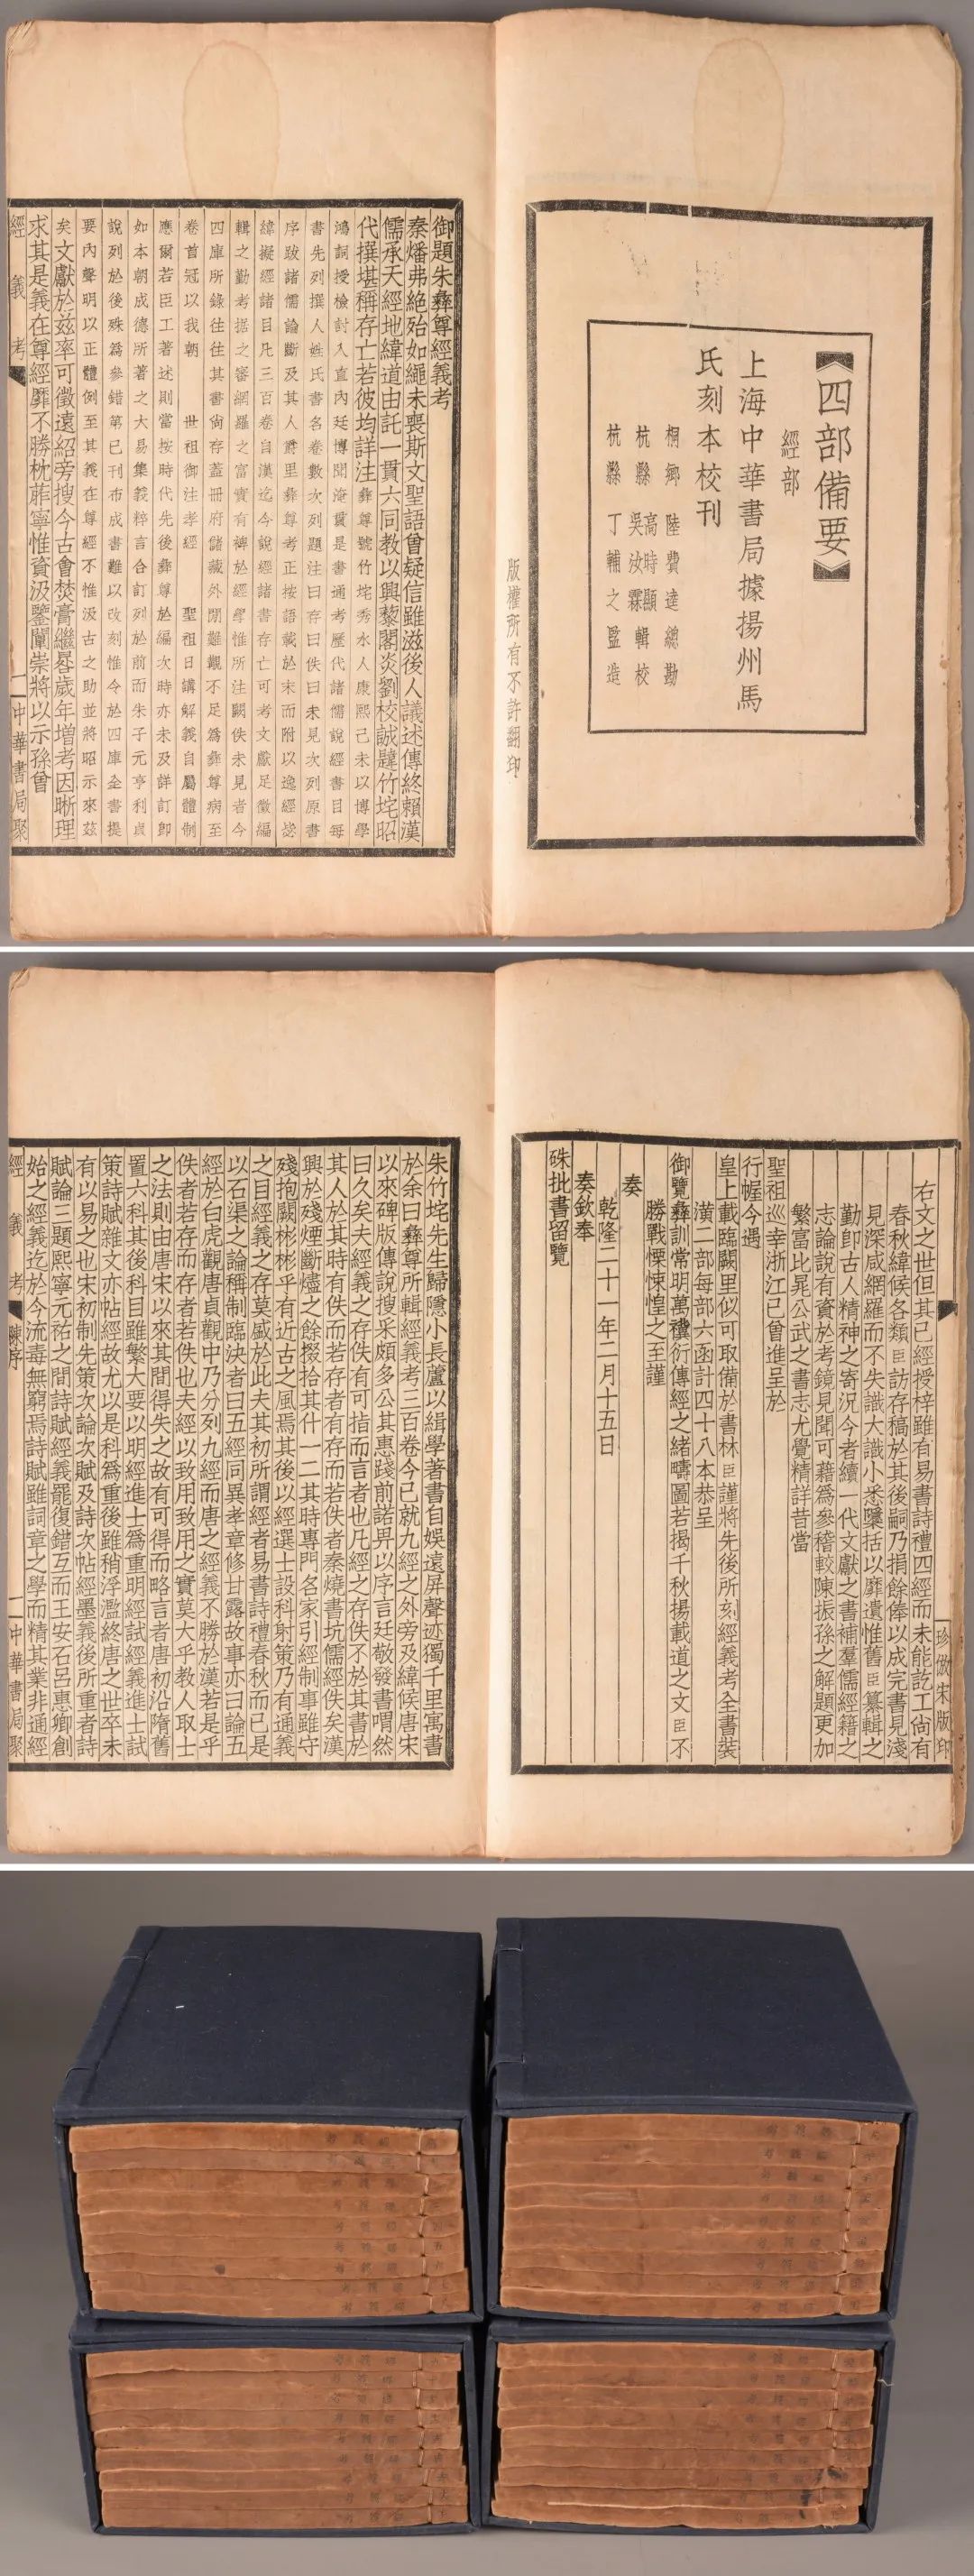 四部備要
經部
上海中華書局據揚州馬
氏刻本校刊
桐鄉 陸費逵 總勘
杭縣 高時顯 吳汝霖 輯校
杭縣 丁輔之 監造
版權所有不許翻印
御題朱彝尊經義考
秦燔弗絕殆如繩未喪斯文聖語曾疑信雖滋後人議述傳終賴漢
儒承天經地緯道由託一貫六同教以興藜閣炎劉校誠韙竹垞昭
代撰堪稱存亡若彼均詳注彝尊號竹垞秀水人康熙己未以博學
鴻詞授檢討入直內廷博聞淹貫是書通考歷代諸儒說經書目每
書先列撰人姓氏書名卷數次列題注曰存曰佚曰未見次列原書
序跋諸儒論斷及其人爵里彝尊考正按語載於末而附以逸經毖
緯擬經諸目凡三百卷自漢迄今說經諸書存亡可考文獻足徵編
輯之勤考据之審網羅之富實有裨於經學惟所注闕佚未見者今
四庫所錄往往其書尚存蓋冊府儲藏外閒難觀不足為彝尊病至
卷首冠以我朝 世祖御注孝經 聖祖日講解義自屬體制
應爾若臣工著述則當按時代先後彝尊於編次時亦未及詳訂卽
如本朝成德所著之大易集義粹言合訂列於前而朱子元亨利貞
說列於後殊為參錯第已刊布成書難以改刻惟令於四庫全書提
要內聲明以正體例至其義在尊經不惟汲古之助並將昭示來茲
矣文獻於茲率可徵遠紹旁搜今古會焚膏繼晷歲年增考因晰理
求其是義在尊經靡不勝枕葄寧惟資汲鑒闡崇將以示孫曾
經義考 一 中華書局聚
右文之世但其已經授梓雖有易書詩禮四經而未能訖工尚有
春秋緯候各類臣訪存稿於其後嗣乃捐餘俸以成完書見淺
見深咸網羅而不失識大識小悉檃括以靡遺惟舊臣纂輯之
勤卽古人精神之寄況今者續一代文獻之書補羣儒經籍之
志論說有資於考鏡見聞可藉為參稽較陳振孫之解題更加
繁富比晁公武之書志尤覺精詳昔當
聖祖巡幸浙江已曾進呈於
行幄今遇
皇上載臨闕里似可取備於書林臣謹將先後所刻經義考全書裝
潢二部每部六函計四十八本恭呈
御覽彝訓常明萬禩衍傳經之緒疇圖若揭千秋揚載道之文臣不
勝戰慄悚惶之至謹
奏
乾隆二十一年二月十五日
奏欽奉
硃批書留覽
珍倣宋版印
朱竹垞先生歸隱小長蘆以緝學著書自娛遠屏聲迹獨千里寓書
於余曰彝尊所輯經義考三百卷今已就九經之外旁及緯候唐宋
以來碑版傳說搜采頗多公其惠踐前諾畀以序言廷敬發書喟然
曰久矣夫經義之存佚有可指而言者也凡經之存佚不於其書於
其人於其時有佚而若存者有存而若佚者秦燒書坑儒經佚矣漢
興於殘煙斷燼之餘掇拾其什一二其時專門名家引經制事雖守
殘抱闕彬彬乎有近古之風焉其後以經選士設科射策乃有通義
之目經義之存莫盛於此夫其初所謂經者易書詩禮春秋而已是
以石渠之論稱制臨決者曰五經同異孝章修甘露故事亦曰論五
經於白虎觀唐貞觀中乃分列九經而唐之經義不勝於漢若是乎
佚者若存而存者若佚也夫經以致用致用之實莫大乎教人取士
之法則由唐宋以來其間得失之故有可得而略言者唐初沿隋舊
置六科其後科目雖繁大要以明經進士為重明經試經義進士試
策詩賦雜文亦帖經故尤以是科為重後雖稍浮濫終唐之世卒未
有以易之也宋初制先策次論次賦及詩次帖經墨義後所重者詩
賦論三題熙寧元祐之間詩賦經義罷復錯互而王安石呂惠卿創
始之經義迄於今流毒無窮焉詩賦雖詞章之學而精其業非通經
經義考 陳序 一 中華書局聚